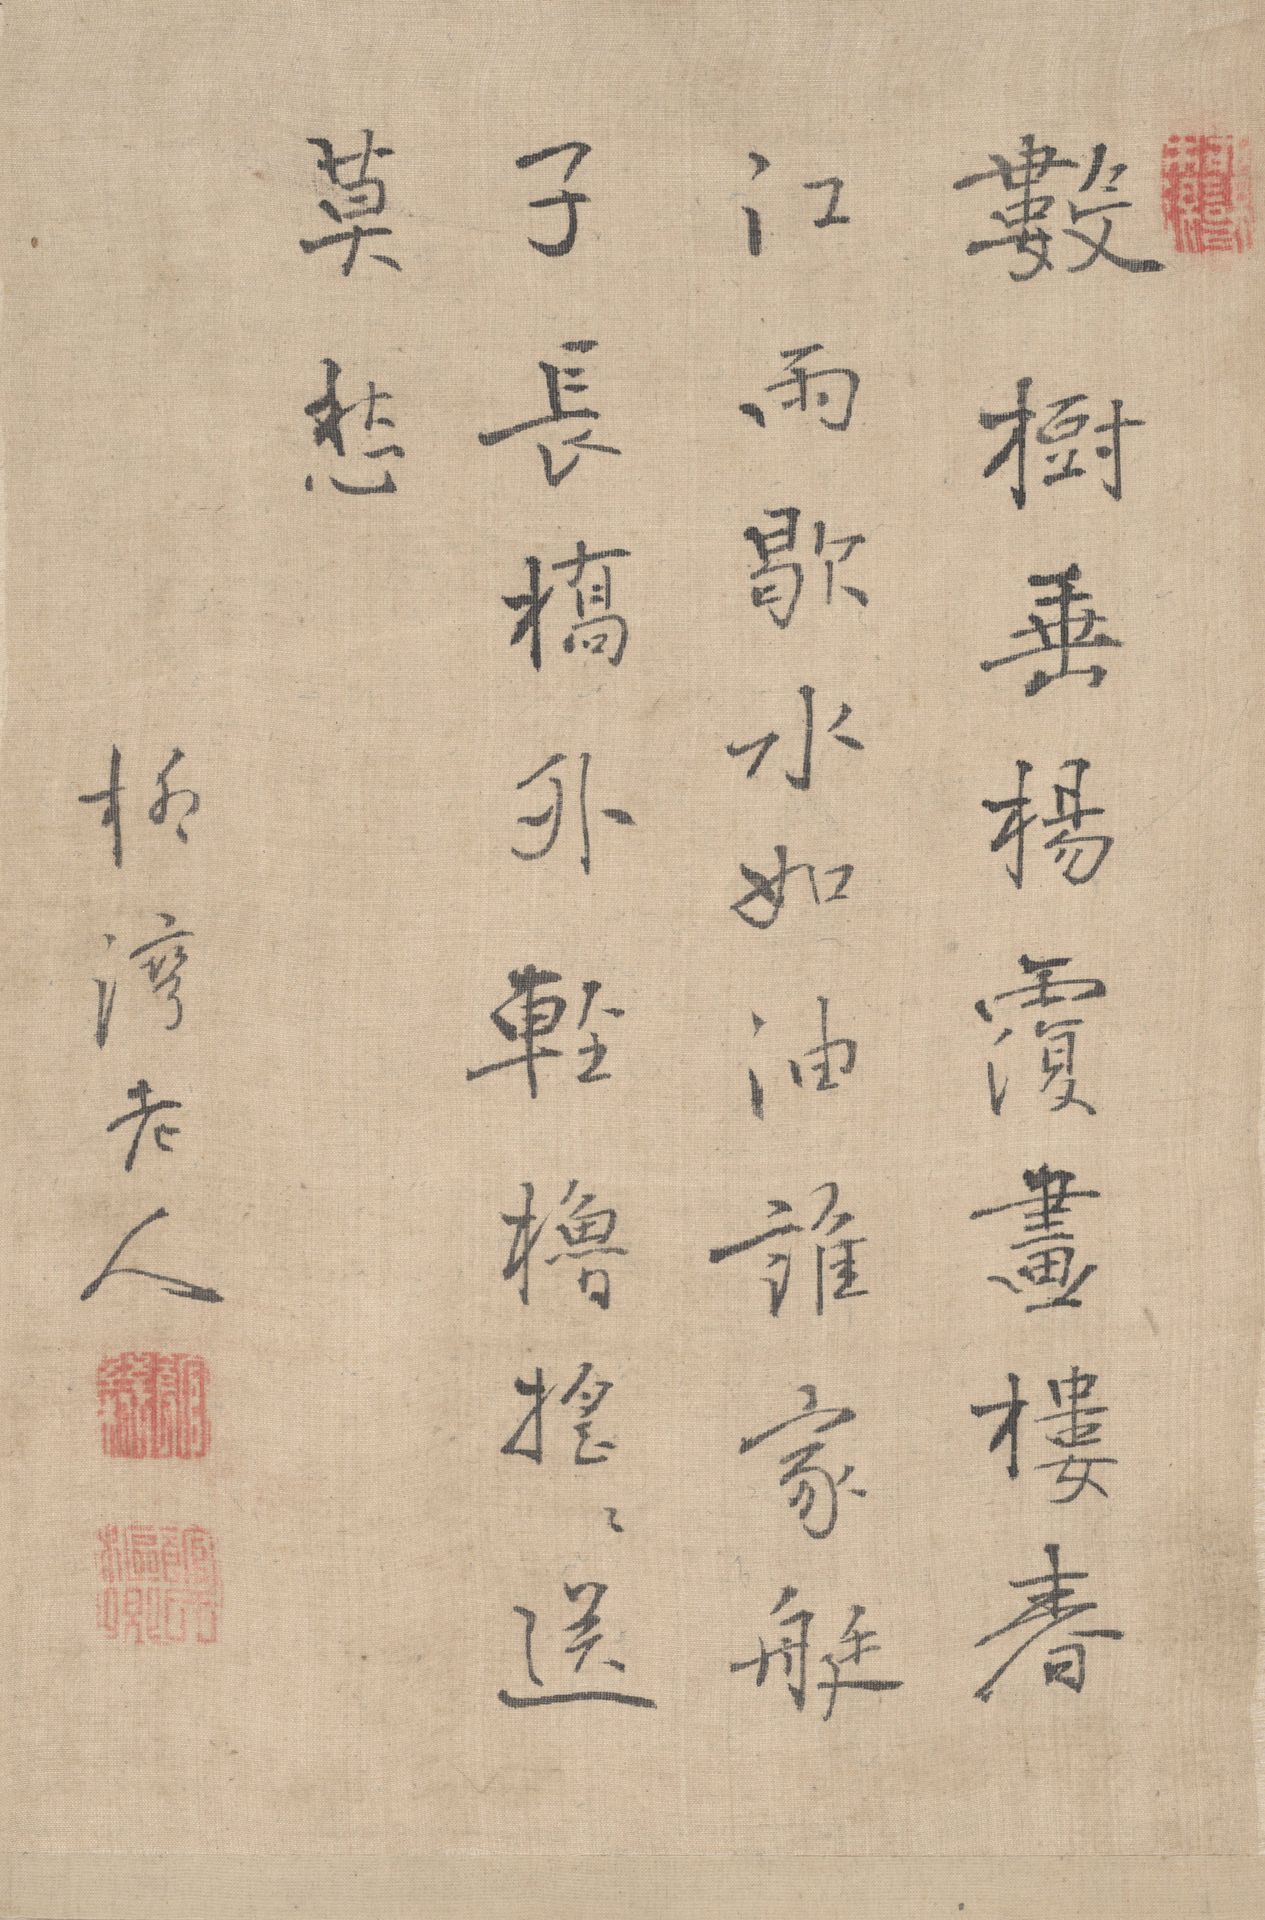 數樹垂楊覆畫樓春
江雨歇水如油誰家艇
子長橋外輕櫓搖〻送
莫愁
柳灣老人